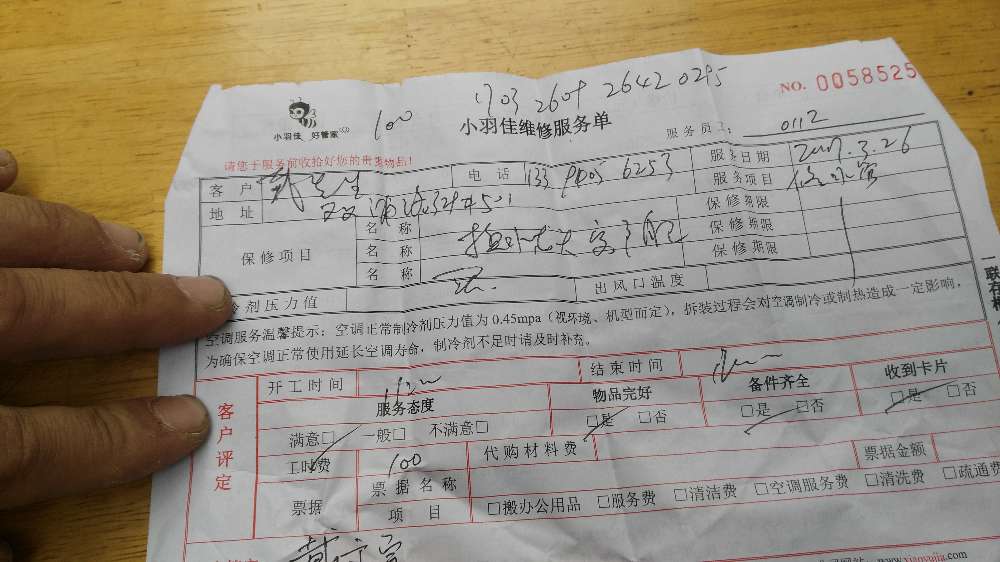 1703 2609 2642 0295
NO. 0058525
小羽佳 好管家
100
小羽佳维修服务单
服务员工: 0112
请您于服务前收拾好您的贵重物品!
客户 戴先生 电话 133 6253 服务日期 3.26
地址 服务项目 修水管
保修项目 名称 保修期限
名称 保修期限
名称 保修期限
冷剂压力值 出风口温度
空调服务温馨提示: 空调正常制冷剂压力值为0.45mpa(视环境、机型而定), 拆装过程会对空调制冷或制热造成一定影响,
为确保空调正常使用延长空调寿命, 制冷剂不足时请及时补充。
客户评定
开工时间 结束时间
服务态度 物品完好 备件齐全 收到卡片
满意□ 一般□ 不满意□ □是 □否 □是 □否 □是 □否
工时费 100 代购材料费
票据 票据名称 票据金额
项目 □搬办公用品 □服务费 □清洁费 □空调服务费 □清洗费 □疏通费